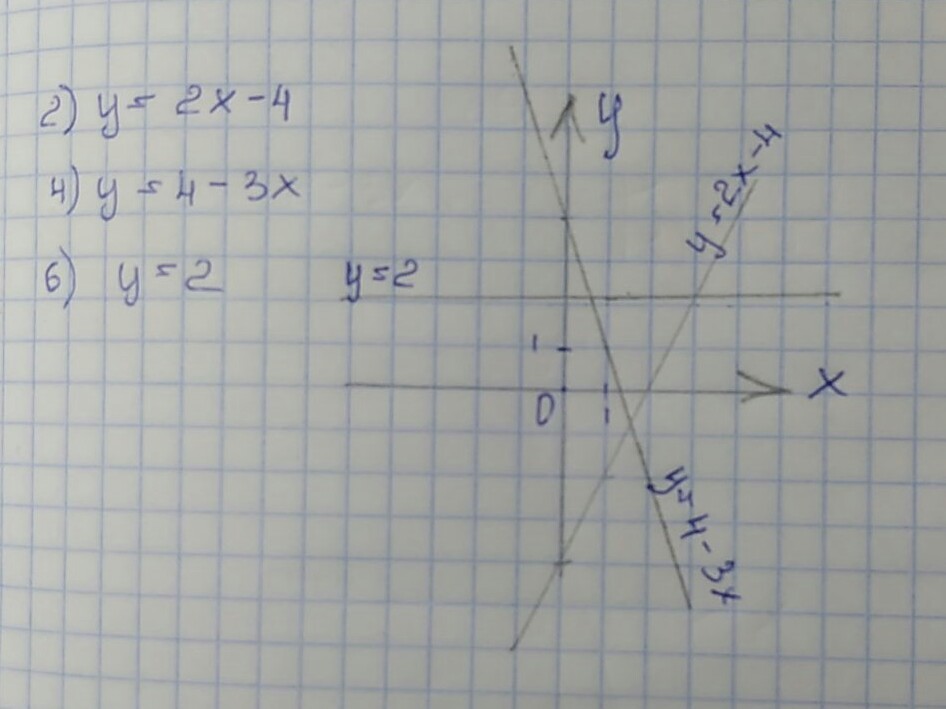 2) y = 2x - 4
4) y = 4 - 3x
6) y = 2
y = 2
y
y = 2x - 4
1
0
1
x
y = 4 - 3x